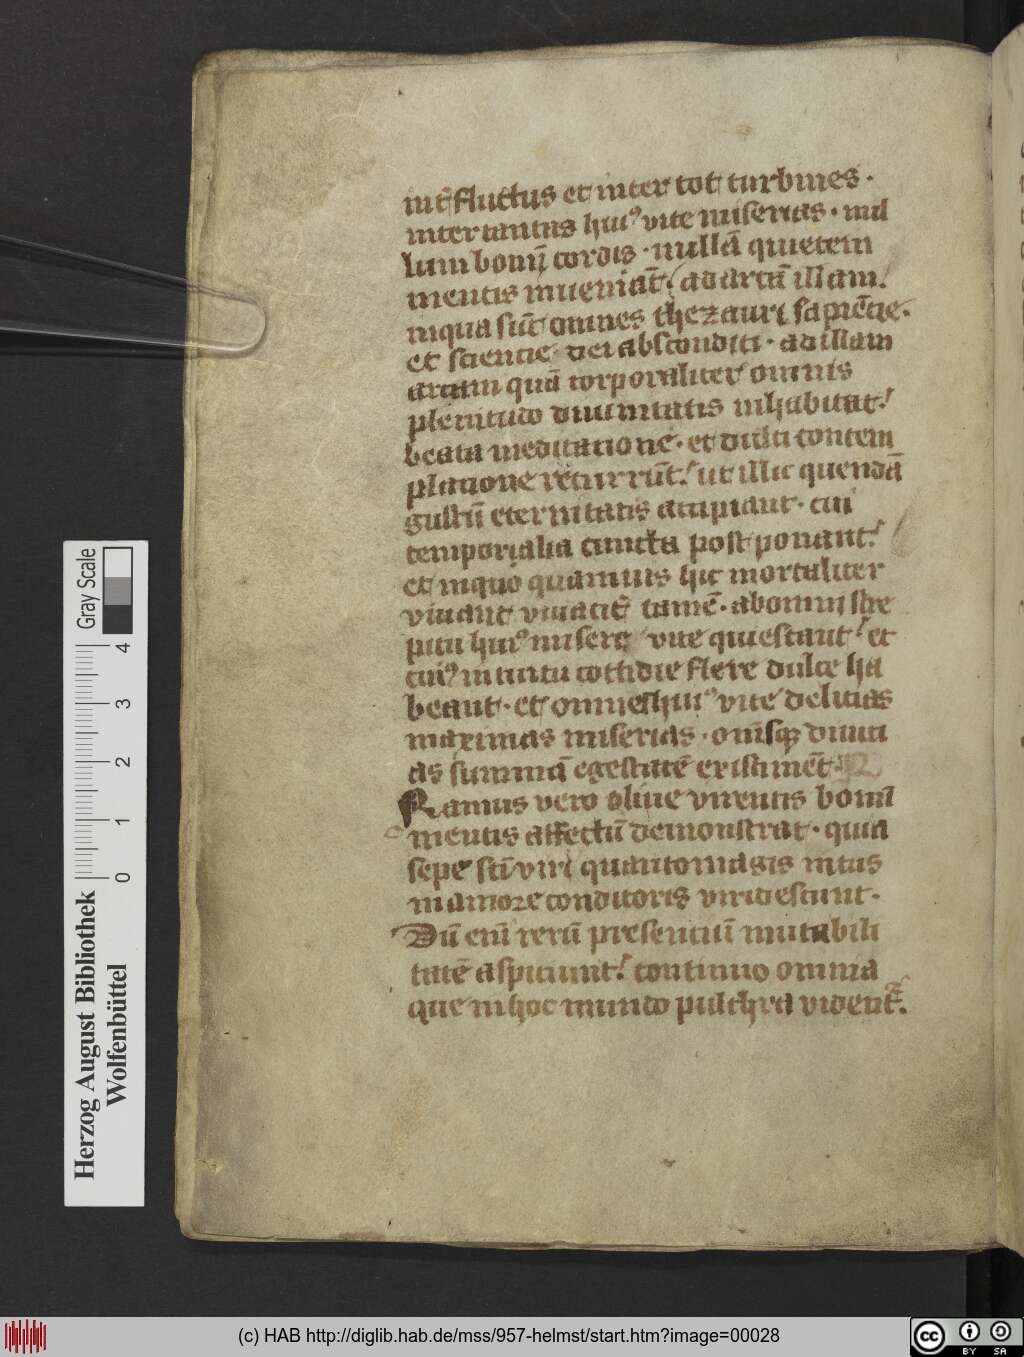 int̾ fluctus et inter tot turbines ·
inter tantas huiꝰ vite miserias · nul
lum boni cordis · nullā quietem
mentis inueniāt · ad arcā illam
in qua sūt omnes thezauri sapiētie ·
et sciencie dei absconditi · ad illam
arcam quā corporaliter omnis
plenitudo diuinitatis inhabitat
beata meditatione · et dulci contem
platione recurrūt ut illic quendā
gustū eternitatis accipiant · cui
temporialia cuncta post ponant
et in quo quamuis hic mortaliter
viuant viuacit̾ tamē · ab omni stre
pitu huiꝰ misere vite quiescant et
cuiꝰ intuitu cottidie flere dulce ha
beant · et omnes huiꝰ vite delicias
maximas miserias · oīsqꝫ diuici
as summā egestatē existimēt ·
Ramus vero oliue virentis boni
mentis affectū demonstrat · quia
sepe sc̄i viri quanto magis intus
in amore conditoris viridescunt ·
Dū enī rerū presenciū mutabili
tatē aspiciunt continuo omnia
que in hoc mundo pulchra videnť.
Herzog August Bibliothek
Wolfenbüttel
Gray Scale
0 1 2 3 4
(c) HAB http://diglib.hab.de/mss/957-helmst/start.htm?image=00028
cc BY SA